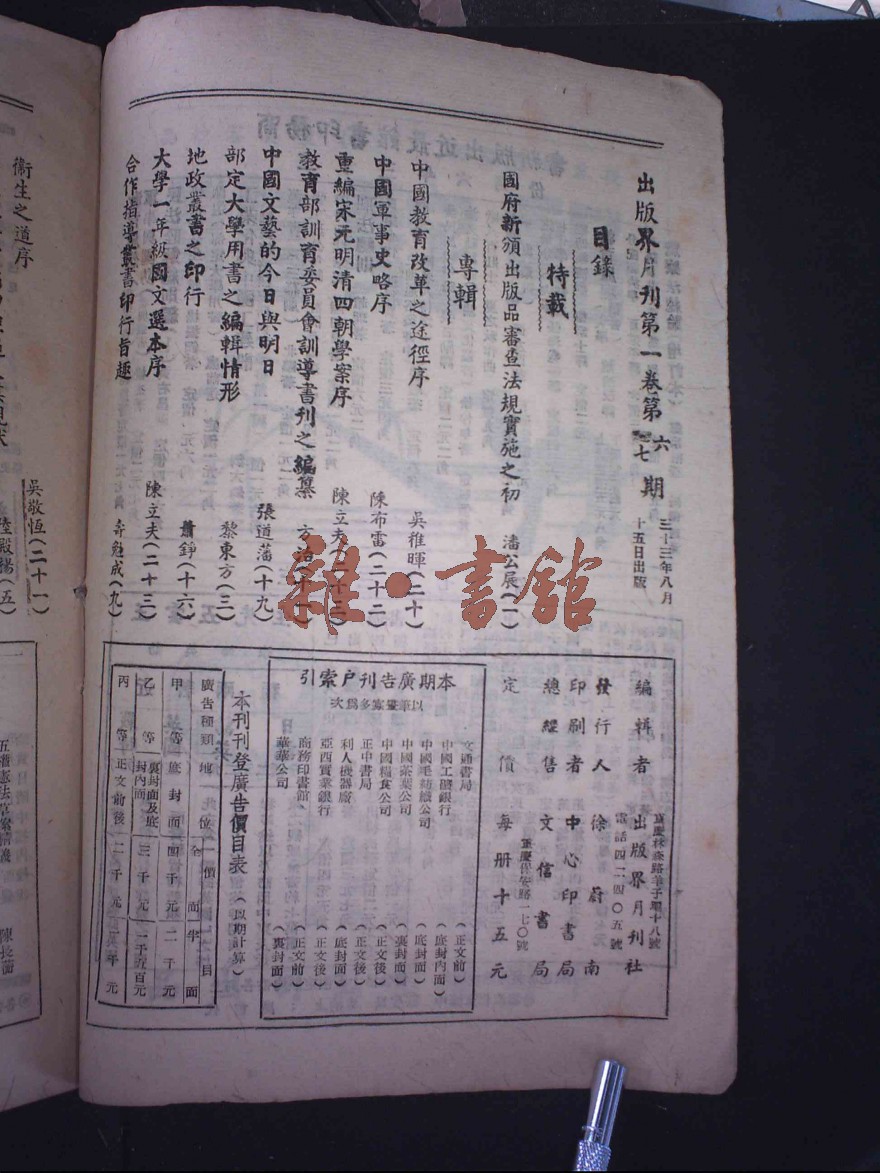 出版界月刊第一卷第六七期
三十三年八月
十五日出版
目錄
特載
國府新頒出版品審查法規實施之初 潘公展(一)
專輯
中國教育改革之途徑序 吳稚暉(二十)
中國軍事史略序 陳布雷(二十二)
重編宋元明清四朝學案序 陳立夫(二十三)
教育部訓育委員會訓導書刊之編纂 方治(十一)
中國文藝的今日與明日 張道藩(十九)
部定大學用書之編輯情形 黎東方(三)
地政叢書之印行 蕭錚(十六)
大學一年級國文選本序 陳立夫(二十三)
合作指導叢書印行旨趣 壽勉成(九)
衞生之道序 吳敬恒(二十一)
編輯者 出版界月刊社
電話四二四〇五號
發行人 徐蔚南
印刷者 中心印書局
總經售 文信書局
重慶保安路一七〇號
定價 每册十五元
本期廣告刊户索引
以筆畫寡多爲次
文通書局 (正文前)
中國工礦銀行 (底封內面)
中國毛紡織公司 (底封面)
中國茶葉公司 (裏封面)
中國糧食公司 (正文後)
正中書局 (正文後)
利人機器廠 (底封面)
亞西實業銀行 (正文後)
商務印書館 (正文前)
華華公司 (裏封面)
本刊刊登廣告價目表 (以期計算)
廣告種類 地位 價目 全面 半面
甲等 底封面 四千元 二千元
乙等 裏封面及底封內面 三千元 一千五百元
丙等 正文前後 二千元 一千元
陸殿揚(五)
陳長蘅
雜·書館